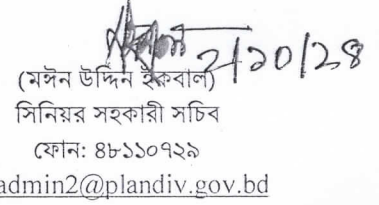 ২/১০/২৪
(মঈন উদ্দিন ইকবাল)
সিনিয়র সহকারী সচিব
ফোন: ৪৮১১০৭২৯
admin2@plandiv.gov.bd